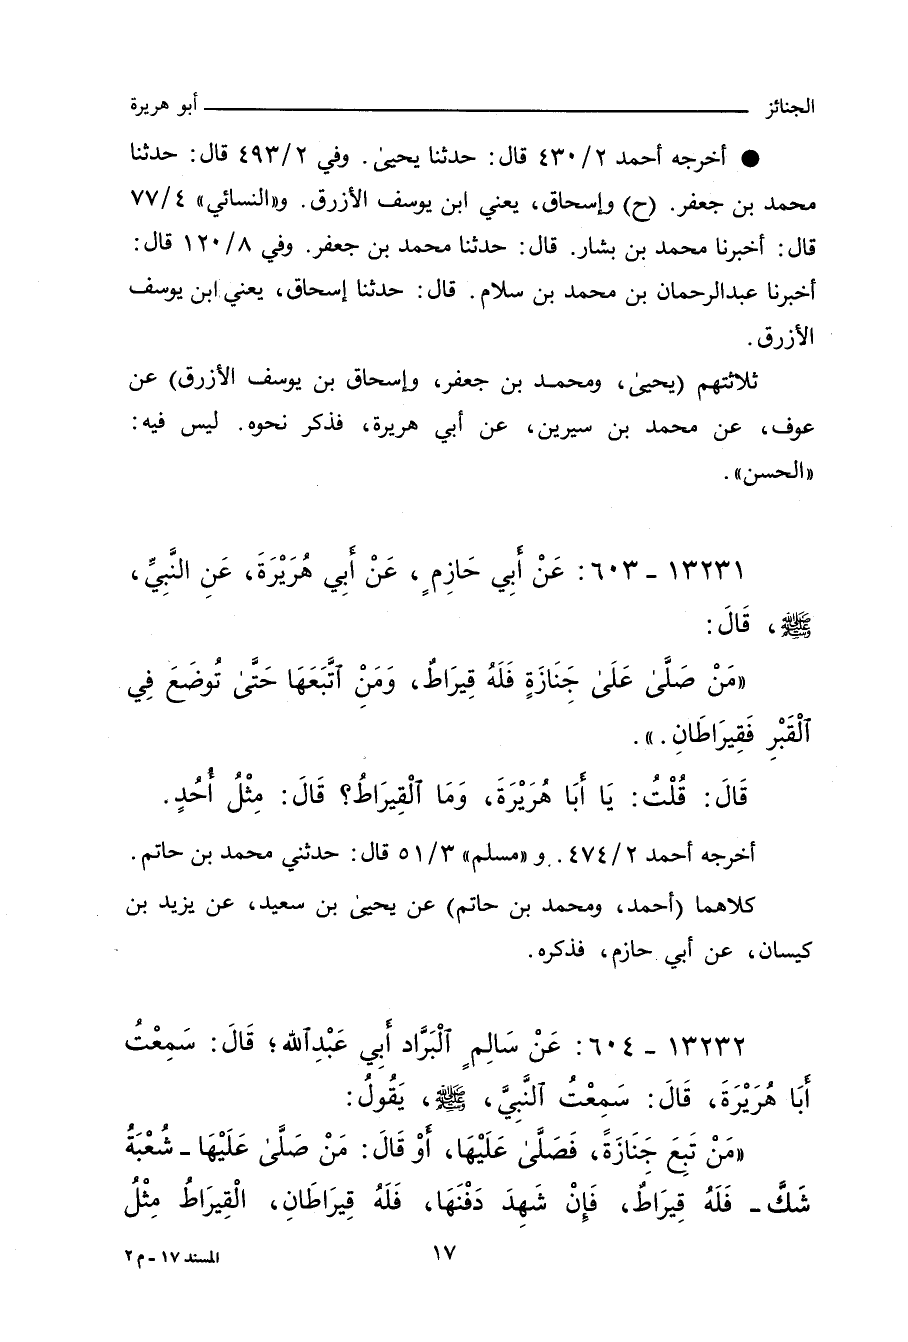 الجنائز ــــــــــ أبو هريرة
● أخرجه أحمد ٢/ ٤٣٠ قال: حدثنا يحيىٰ. وفي ٢/ ٤٩٣ قال: حدثنا
محمد بن جعفر. (ح) وإسحاق، يعني ابن يوسف الأزرق. و«النسائي» ٤/ ٧٧
قال: أخبرنا محمد بن بشار. قال: حدثنا محمد بن جعفر. وفي ٨/ ١٢٠ قال:
أخبرنا عبدالرحمان بن محمد بن سلام. قال: حدثنا إسحاق، يعني ابن يوسف
الأزرق.
ثلاثتهم (يحيىٰ، ومحمد بن جعفر، وإسحاق بن يوسف الأزرق) عن
عوف، عن محمد بن سيرين، عن أبي هريرة، فذكر نحوه. ليس فيه:
«الحسن».
١٣٢٣١ - ٦٠٣: عَنْ أَبِي حَازِمٍ، عَنْ أَبِي هُرَيْرَةَ، عَنِ النَّبِيِّ،
ﷺ، قَالَ:
«مَنْ صَلَّىٰ عَلَىٰ جَنَازَةٍ فَلَهُ قِيرَاطٌ، وَمَنِ ٱتَّبَعَهَا حَتَّىٰ تُوضَعَ فِي
ٱلْقَبْرِ فَقِيرَاطَانِ.».
قَالَ: قُلْتُ: يَا أَبَا هُرَيْرَةَ، وَمَا ٱلْقِيرَاطُ؟ قَالَ: مِثْلُ أُحُدٍ.
أخرجه أحمد ٢/ ٤٧٤. و«مسلم» ٣/ ٥١ قال: حدثني محمد بن حاتم.
كلاهما (أحمد، ومحمد بن حاتم) عن يحيىٰ بن سعيد، عن يزيد بن
كيسان، عن أبي حازم، فذكره.
١٣٢٣٢ - ٦٠٤: عَنْ سَالِمٍ ٱلْبَرَّادِ أَبِي عَبْدِٱلله؛ قَالَ: سَمِعْتُ
أَبَا هُرَيْرَةَ، قَالَ: سَمِعْتُ ٱلنَّبِيَّ، ﷺ، يَقُولُ:
«مَنْ تَبِعَ جَنَازَةً، فَصَلَّىٰ عَلَيْهَا، أَوْ قَالَ: مَنْ صَلَّىٰ عَلَيْهَا - شُعْبَةُ
شَكَّ - فَلَهُ قِيرَاطٌ، فَإِنْ شَهِدَ دَفْنَهَا، فَلَهُ قِيرَاطَانِ، الْقِيرَاطُ مِثْلُ
١٧
المسند ١٧ - م ٢